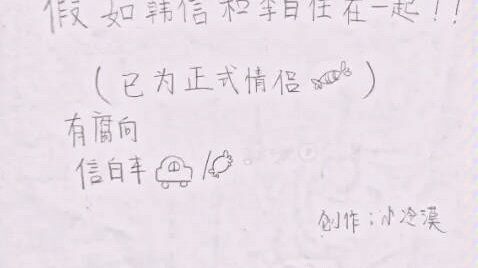 假如韩信和李白住在一起!!
(已为正式情侣)
有腐向
信白车 /
创作:小冷漠